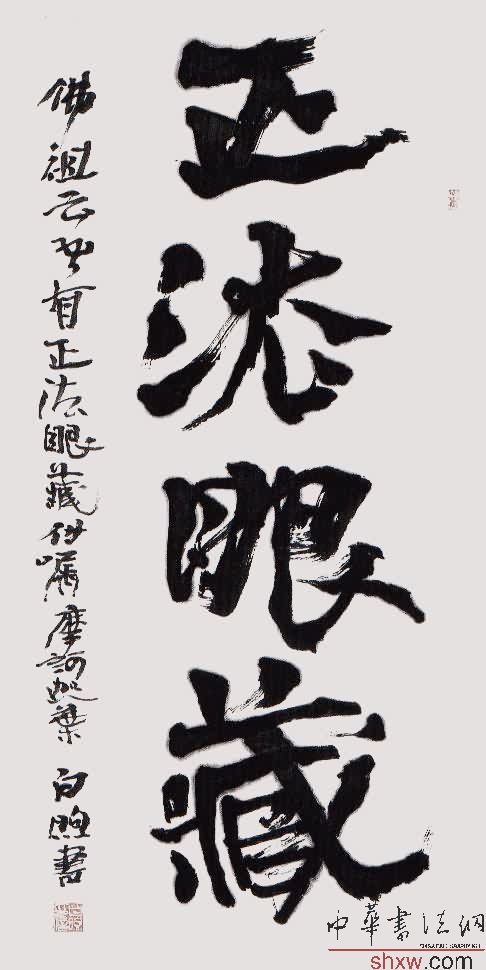 正法眼藏
佛祖云吾有正法眼藏付嘱摩訶迦葉 白煦書
中華書法網
shxw.com